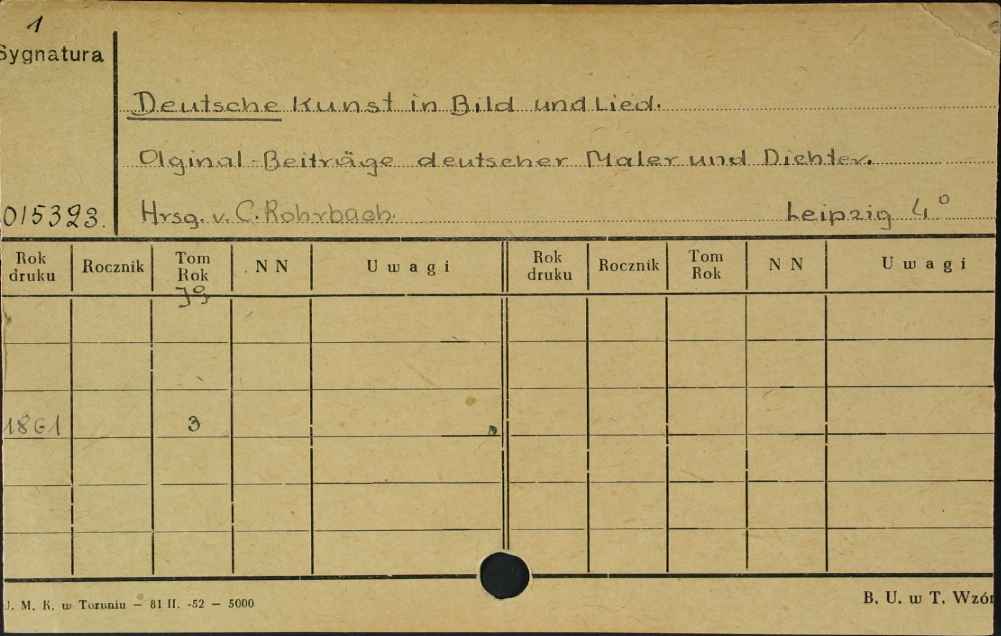 1
Sygnatura
Deutsche Kunst in Bild und Lied.
Olginal-Beiträge deutscher Maler und Dichter.
015323. Hrsg. v. C. Rohrbach. Leipzig 4°
Rok druku Rocznik Tom Rok NN Uwagi Rok druku Rocznik Tom Rok NN Uwagi
Jg
1861 3
U. M. K. w Toruniu — 81 II. -52 — 5000 B. U. w T. Wzór